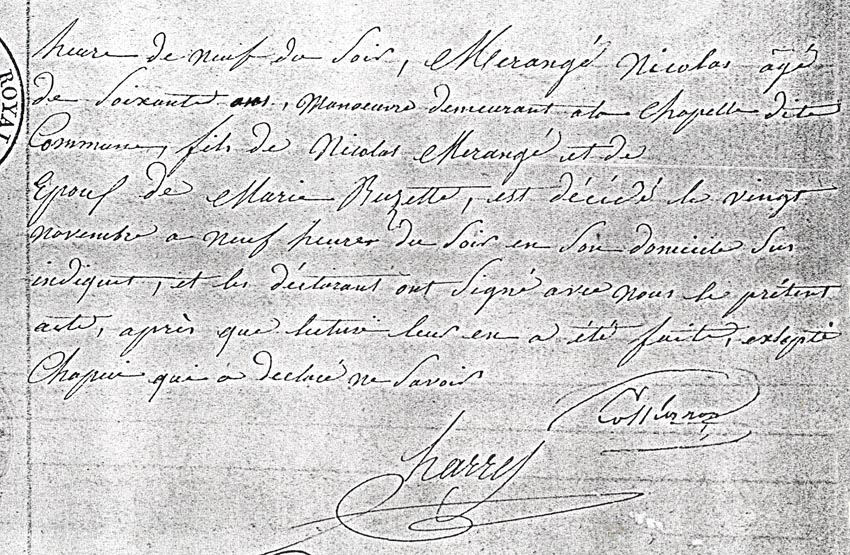 heure de neuf du Soir, Merangé Nicolas âgé
de Soixante ans, Manoeuvre demeurant a la Chapelle dite
Commune, fils de Nicolas Merangé et de
Epoux de Marie Buzette, est décédé le vingt
novembre a neuf heures du Soir en Son domicile Sus
indiquet, et les déclarant ont Signé avec nous le présent
acte, après que lecture leur en a été faite, exsepté
Chapui qui a declaré ne Savoir
Charres
ROYAL